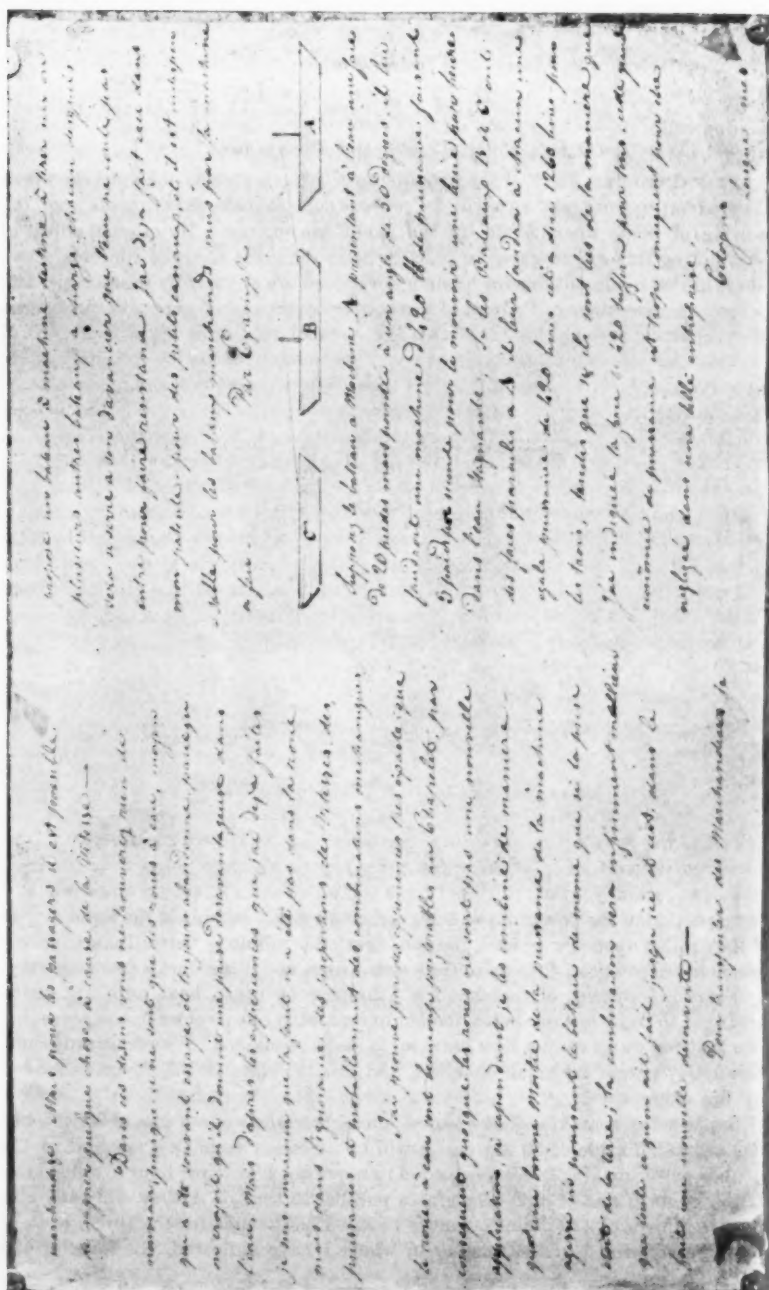 marchandises. Mais pour les passagers il est possible
de gagner quelque chose à cause de la Vitesse —
Dans ces dessins vous ne trouverez rien de
nouveau, puisque ce ne sont que des roues à eau, moyen
qui a été souvent essayé et toujours abandonné puisque
on croyait qu'il donnait une prise desavantageuse dans
l'eau. Mais d'apres les expériences que j'ai deja faites
je suis convaincu que la faute n'a été pas dans la roue
mais dans l'ignorance des proportions, des Vitesses, des
puissances et probablement des combinaisons mechaniques
J'ai prouvé par mes expériences tres exactes que
les roues à eau sont beaucoup preferables aux Chapelets par
consequent quoique les roues ne sont pas une nouvelle
application, si cependant je les combine de maniere
que une bonne Moitié de la puissance de la machine
agisse en poussant le bateau comme que si la prise
etait de la terre; la combinaison sera infiniment meilleure
que toute ce qu'on a fait jusqu'ici et c'est, dans le
fait une nouvelle decouverte —
Pour transporter des Marchandises je
propose un bateau à machine destiné à tirer un ou
plusieurs autres bateaux à charges, chacun desquels
sera si serré a son devancier que l'eau ne entre pas
entre pour faire resistance. J'ai deja fait ceci dans
mon patente pour des petits canaux, et il est indispen
sable pour les bateaux marchands mus par la machine
a feu.
Par Exemple
C B A
Supposez le bateau a Machine A presentant a l'eau une face
de 20 piedes mais pointée à un angle de 50 degres, il lui
faudrait une machine de 420 lb de puissance faisant
3 pieds par seconde pour le mouvoir une lieue par heure
dans l'eau stagnante. Si les Bateaux B et C ont
des faces paralles a A il leur faudra à chacun une
egale puissance de 420 livres c'est à dire 1260 livres pour
les trois, tandis que si ils sont liés de la maniere que
j'ai indiquée la force de 420 suffira pour tous. cette grande
économie de puissance est trop pour être
negligée dans une telle entreprise
Citoyens lorsque mes